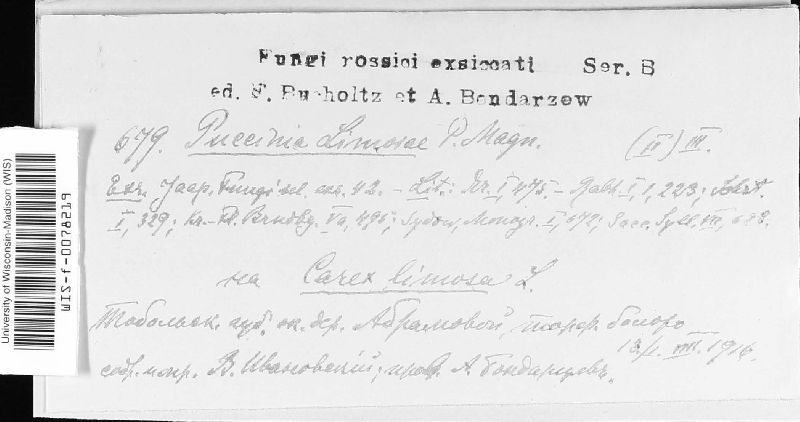 Fungi rossici exsiccati Ser. B
ed. F. Bucholtz et A. Bondarzew
679. Puccinia Limosae P. Magn. (II) III.
Exs. Jaap, Fungi sel. exs. 42. – Lit.: I, 475. – Rabh. I, 1, 223;
I, 329; Kr.-Fl. Brndbg. Va, 495; Sydow, Monogr. I, 672; Sacc. Syll. VII,
на Carex limosa L.
Тобольск. губ. ок. дер. Абрамовой, торф. болото
13/ VIII. 1916.
собр. В. Ивановский; пров. А. Бондарцевъ.
University of Wisconsin-Madison (WIS)
WIS-f-0078219